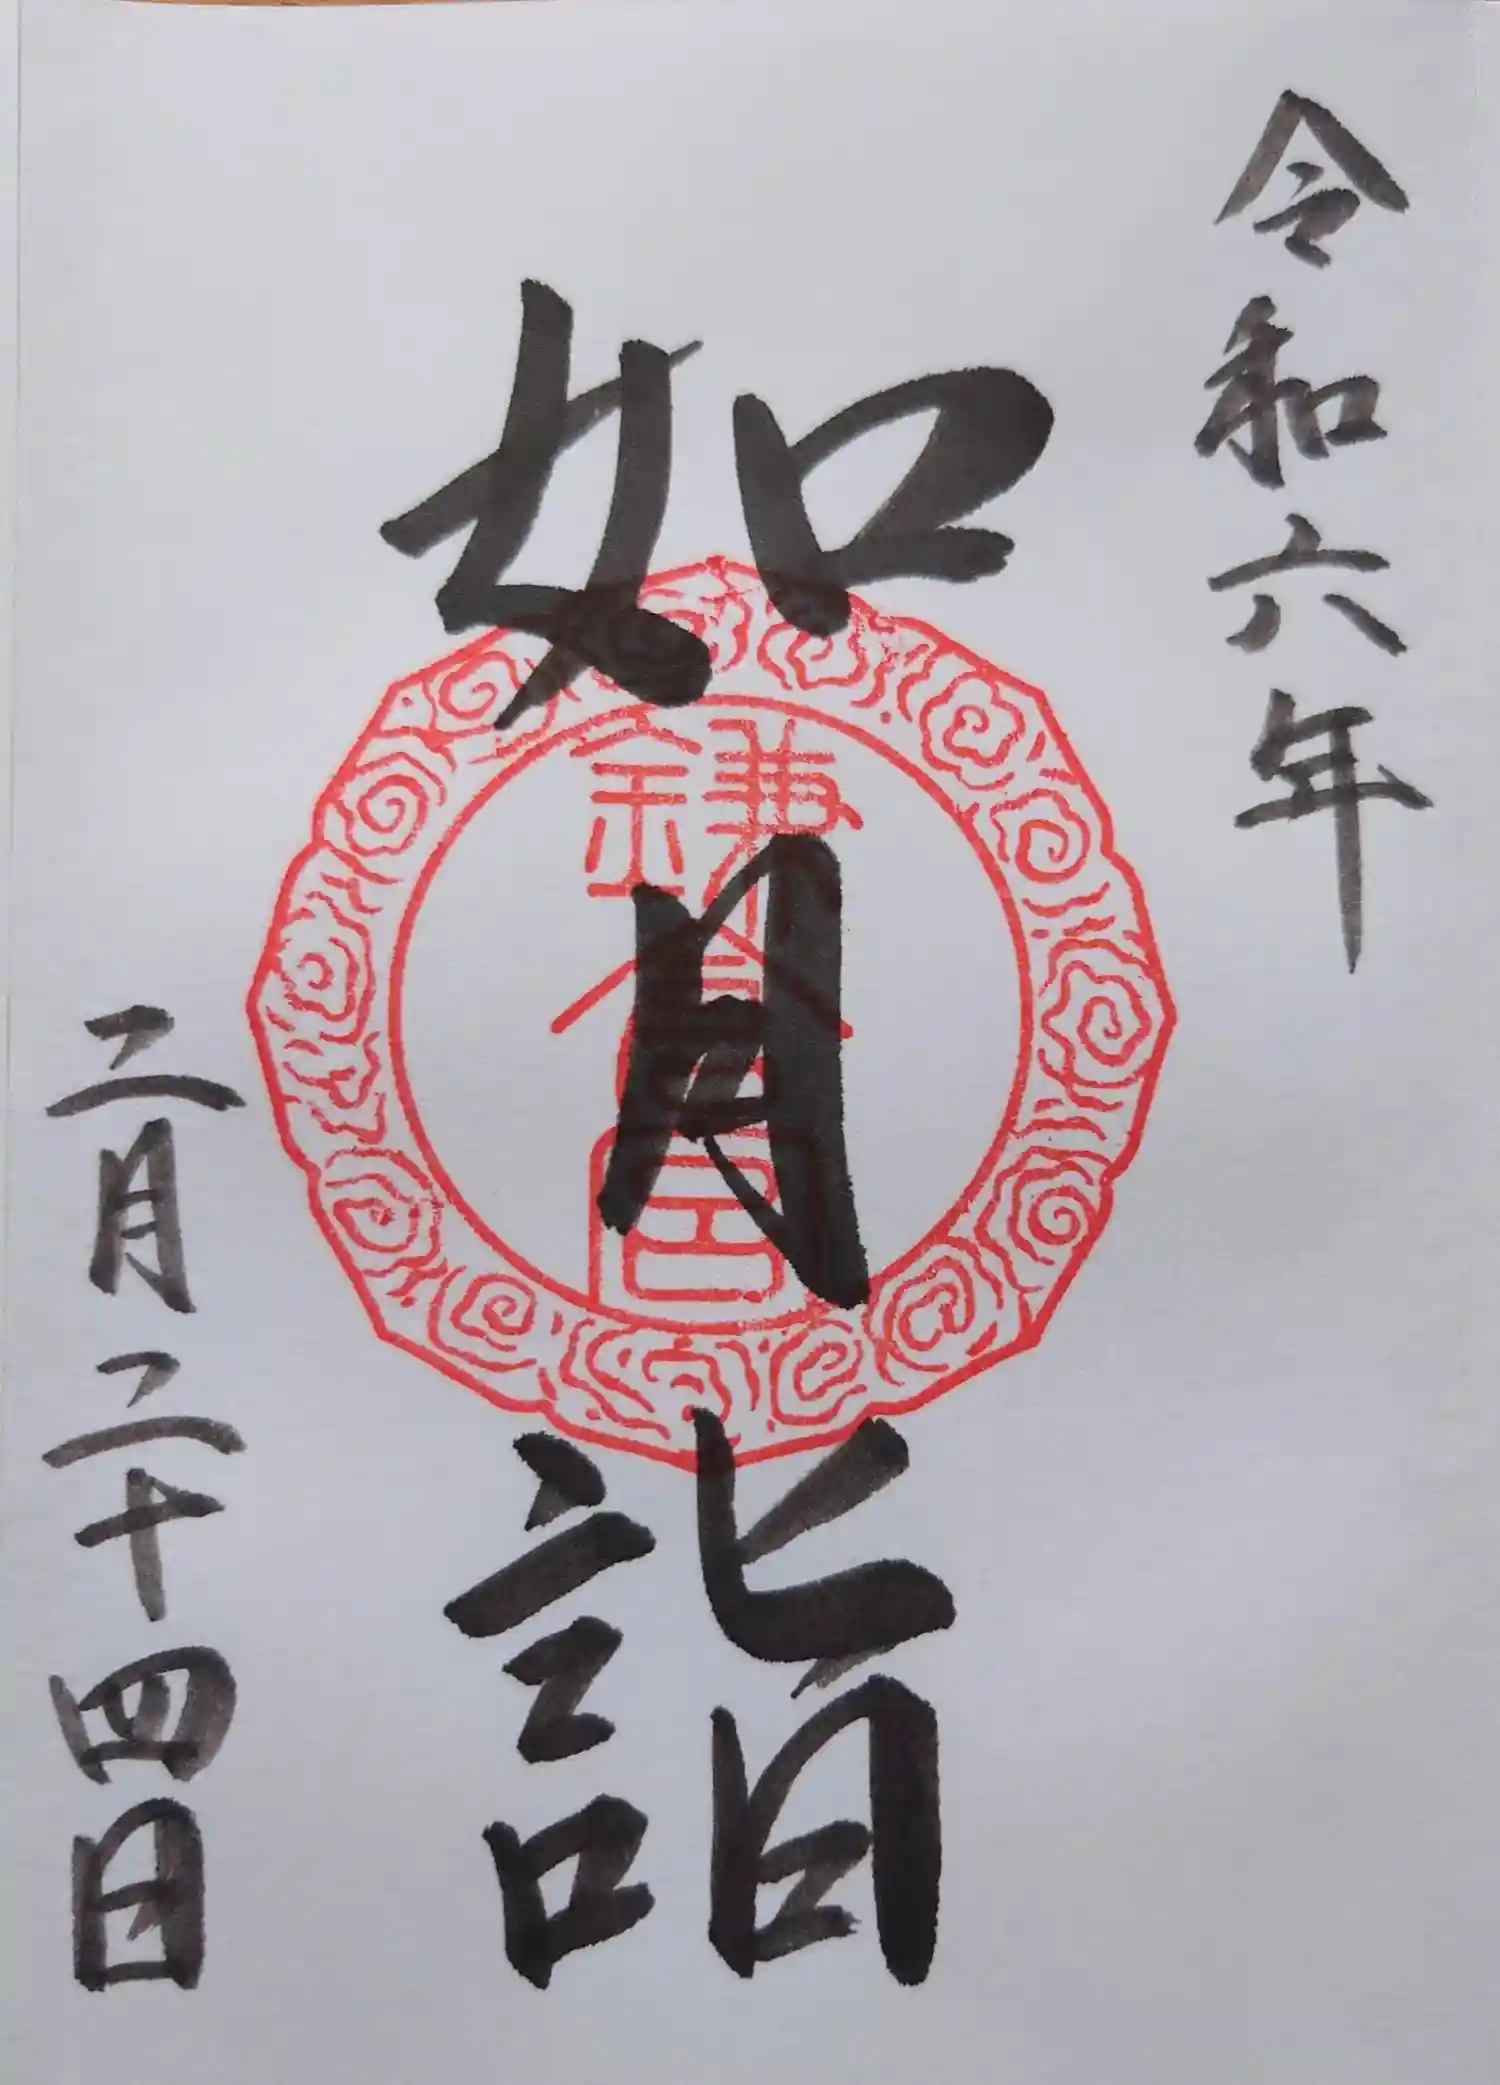 令和六年
如月詣
鎌倉宮
二月二十四日